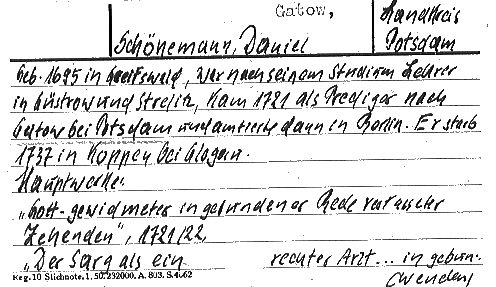 Gatow,
Landkreis
Potsdam
Schönemann, Daniel
Geb. 1695 in Greifswald, war nach seinem Studium Lehrer
in Güstrow und Strelitz, kam 1721 als Prediger nach
Gatow bei Potsdam und amtierte dann in Berlin. Er starb
1737 in Koppen bei Glogau.
Hauptwerke:
„Gott-gewidmeter in gebundener Rede verfasster
Zehenden", 1721/22,
„Der Sarg als ein rechter Arzt ... in gebun-
Reg. 10 Stichnote. 1. 50. 232000. A. 803. S. 4662
(wenden)